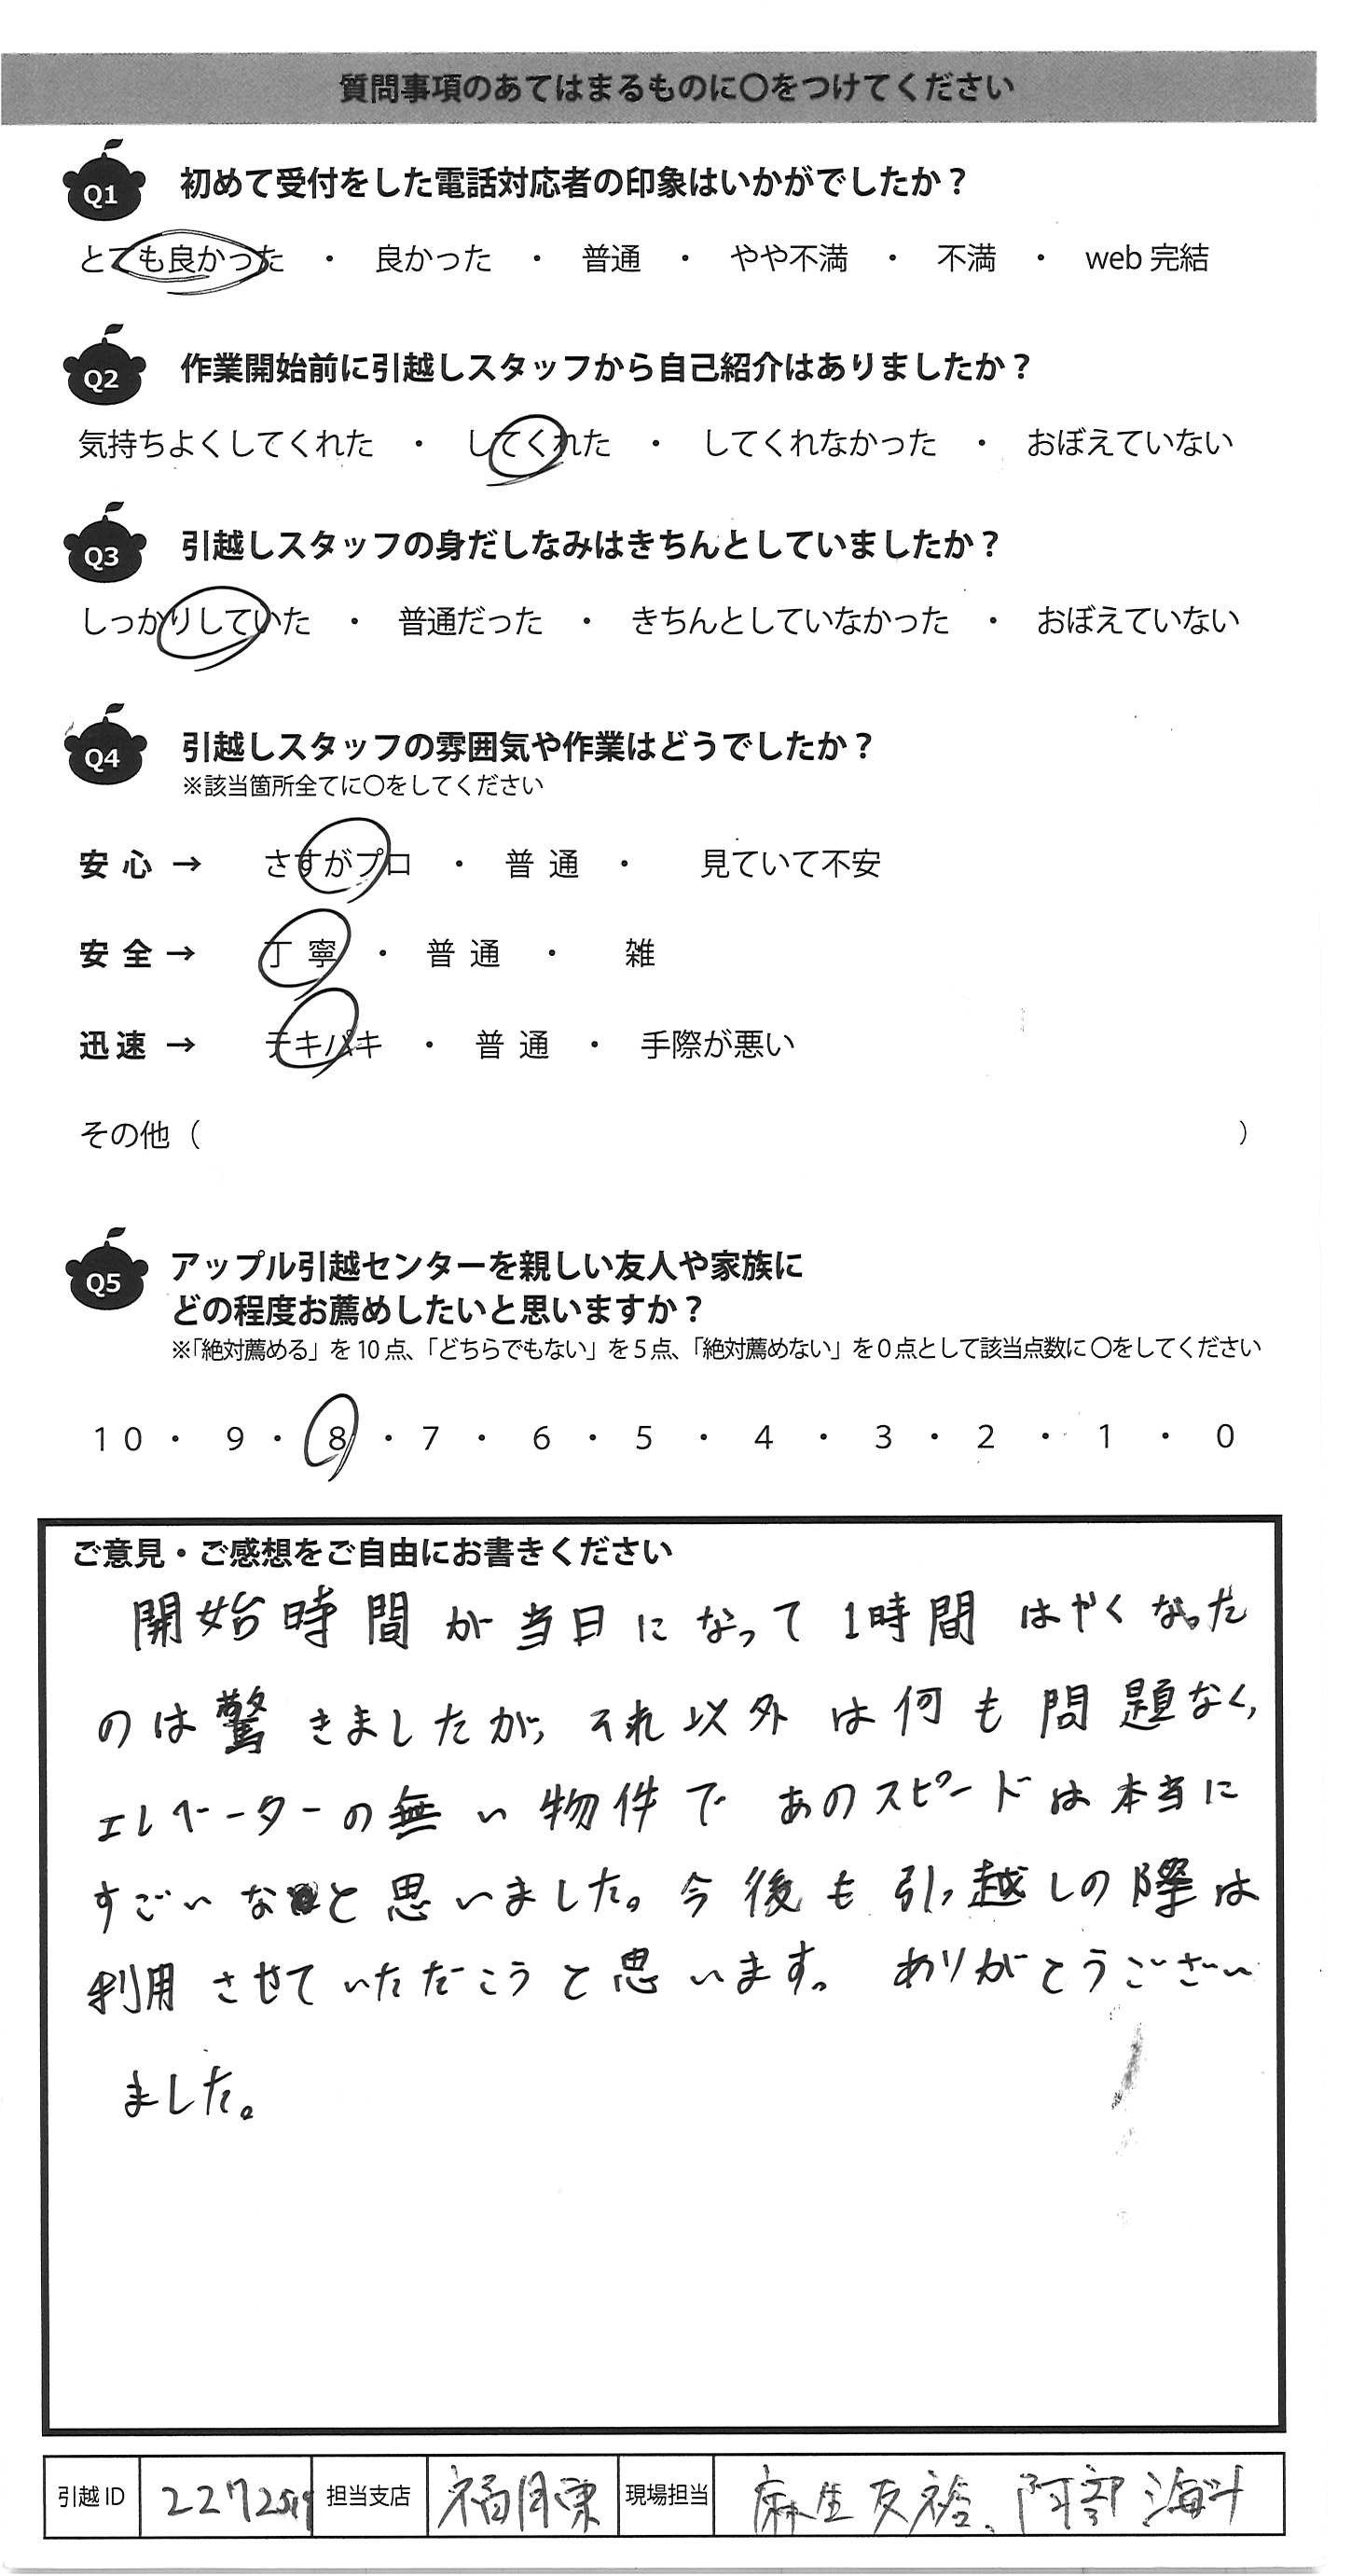 質問事項のあてはまるものに〇をつけてください
Q1 初めて受付をした電話対応者の印象はいかがでしたか？
とても良かった ・ 良かった ・ 普通 ・ やや不満 ・ 不満 ・ web 完結
Q2 作業開始前に引越しスタッフから自己紹介はありましたか？
気持ちよくしてくれた ・ してくれた ・ してくれなかった ・ おぼえていない
Q3 引越しスタッフの身だしなみはきちんとしていましたか？
しっかりしていた ・ 普通だった ・ きちんとしていなかった ・ おぼえていない
Q4 引越しスタッフの雰囲気や作業はどうでしたか？
※該当箇所全てに〇をしてください
安心 → さすがプロ ・ 普通 ・ 見ていて不安
安全 → 丁寧 ・ 普通 ・ 雑
迅速 → テキパキ ・ 普通 ・ 手際が悪い
その他（ ）
Q5 アップル引越センターを親しい友人や家族に
どの程度お薦めしたいと思いますか？
※「絶対薦める」を 10 点、「どちらでもない」を 5 点、「絶対薦めない」を 0 点として該当点数に 〇をしてください
10 ・ 9 ・ 8 ・ 7 ・ 6 ・ 5 ・ 4 ・ 3 ・ 2 ・ 1 ・ 0
ご意見・ご感想をご自由にお書きください
開始時間が当日になって1時間はやくなった
のは驚きましたが、それ以外は何も問題なく、
エレベーターの無い物件であのスピードは本当に
すごいなと思いました。今後も引っ越しの際は
利用させていただこうと思います。ありがとうござい
ました。
引越 ID 担当支店 現場担当 麻生友裕、阿部海斗